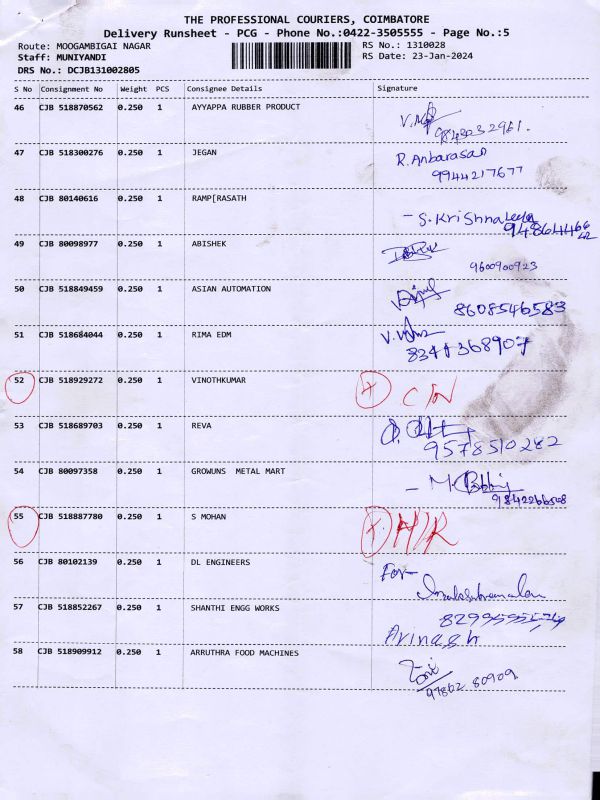 THE PROFESSIONAL COURIERS, COIMBATORE
Delivery Runsheet - PCG - Phone No.:0422-3505555 - Page No.:5
Route: MOOGAMBIGAI NAGAR RS No.: 1310028
Staff: MUNIYANDI RS Date: 23-Jan-2024
DRS No.: DCJB131002805
S No Consignment No Weight PCS Consignee Details Signature
46 CJB 518870562 0.250 1 AYYAPPA RUBBER PRODUCT
9843032961.
47 CJB 518300276 0.250 1 JEGAN R. Anbarasan
9944217677
48 CJB 80140616 0.250 1 RAMP[RASATH
- S. Krishnaleela
49 CJB 80098977 0.250 1 ABISHEK
9600900923
50 CJB 518849459 0.250 1 ASIAN AUTOMATION
8608546583
51 CJB 518684044 0.250 1 RIMA EDM
8344368907
52 CJB 518929272 0.250 1 VINOTHKUMAR
53 CJB 518689703 0.250 1 REVA
9578510282
54 CJB 80097358 0.250 1 GROWUNS METAL MART
55 CJB 518887780 0.250 1 S MOHAN
56 CJB 80102139 0.250 1 DL ENGINEERS For
57 CJB 518852267 0.250 1 SHANTHI ENGG WORKS
Avinash
58 CJB 518909912 0.250 1 ARRUTHRA FOOD MACHINES
97862 80909